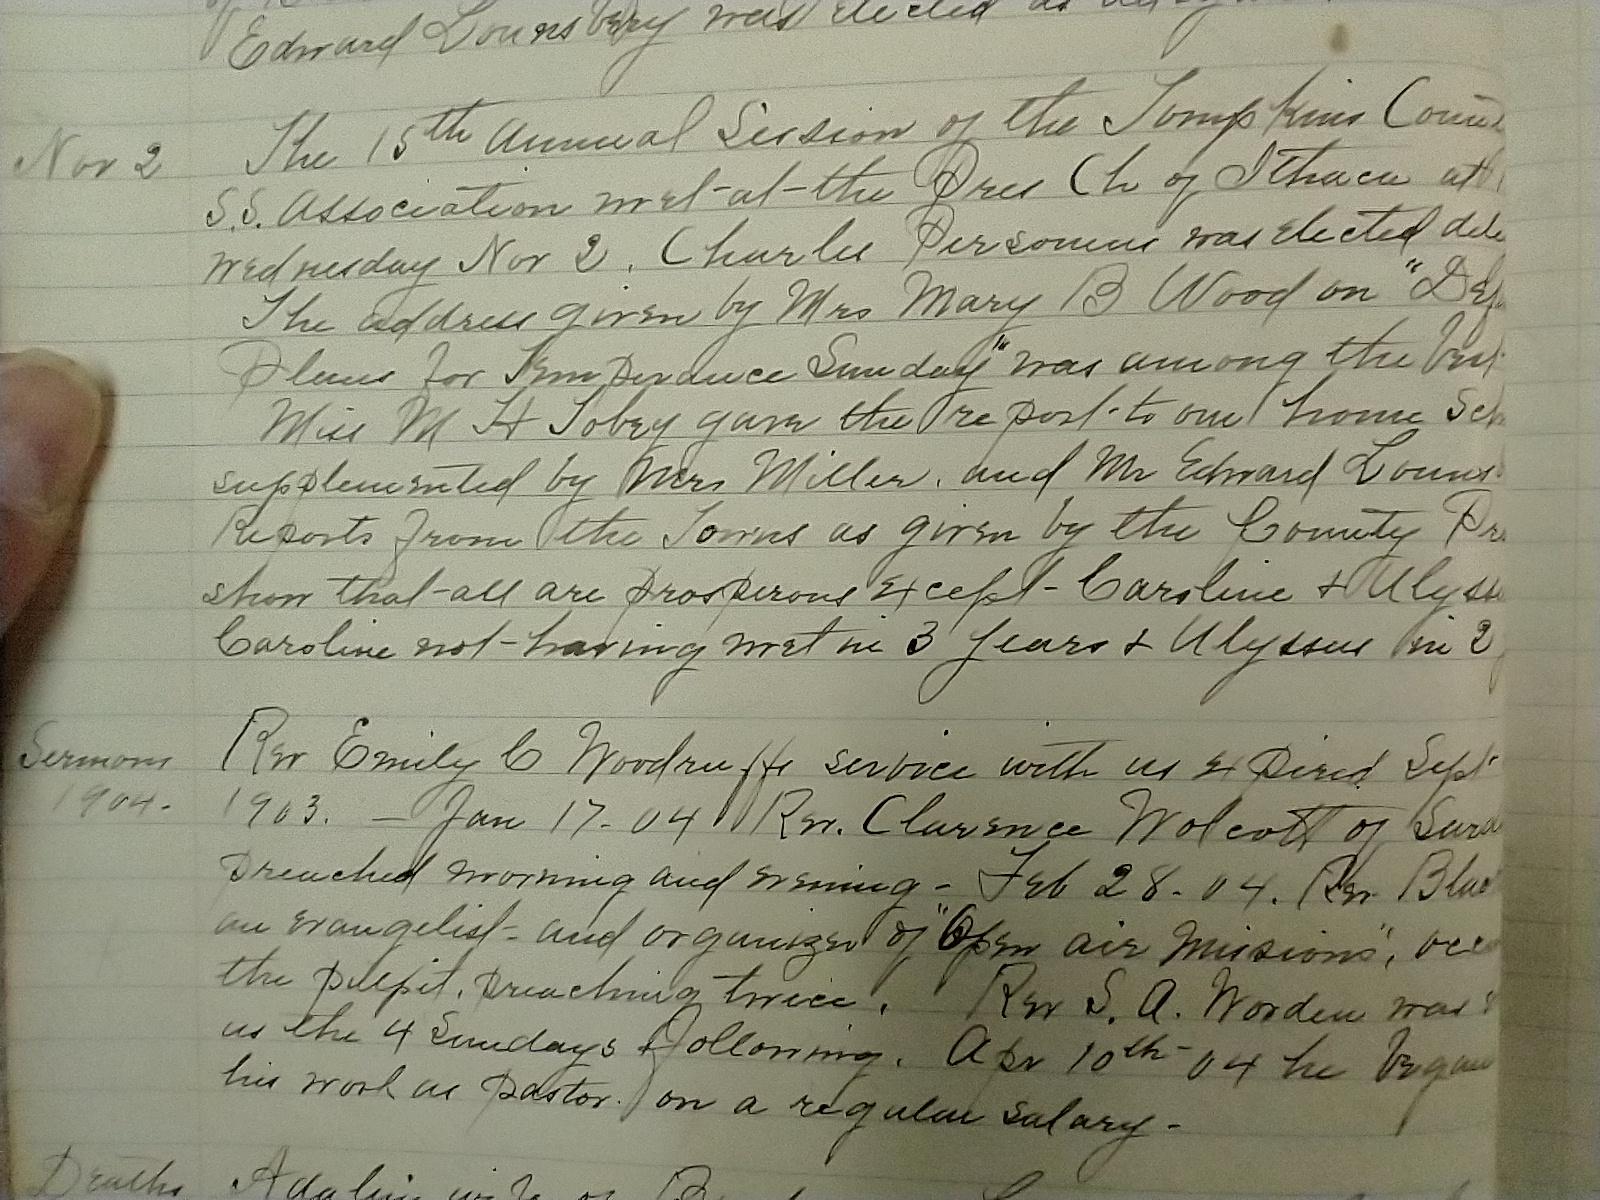 Edward Lounsbery was elected as
Nov 2 The 15th Annual Session of the Tompkins Coun
S.S. Association met at the Pres Ch of Ithaca at
Wednesday Nov 2. Charles Personius was elected dele
The address given by Mrs Mary B Wood on "Def
Plans for Temperance Sunday" was among the best
Miss M H Tobey gave the report to our home Sch
supplemented by Mrs Miller. and Mr Edward Louns
Reports from the Towns as given by the County Pre
show that all are prosperous except Caroline & Ulyss
Caroline not having met in 3 years & Ulysses in 2
Sermons Rev Emily C Woodruffs service with us expired Sept
1904. 1903. — Jan 17-04 Rev. Clarence Wolcott of
preached morning and evening - Feb 28-04. Rev Blac
an evangelist and organizer of "Open air Missions", occ
the pulpit, preaching twice. Rev S. A. Worden was
us the 4 Sundays following. Apr 10th-04 he began
his work as pastor. on a regular salary -
Deaths Adalin wife of